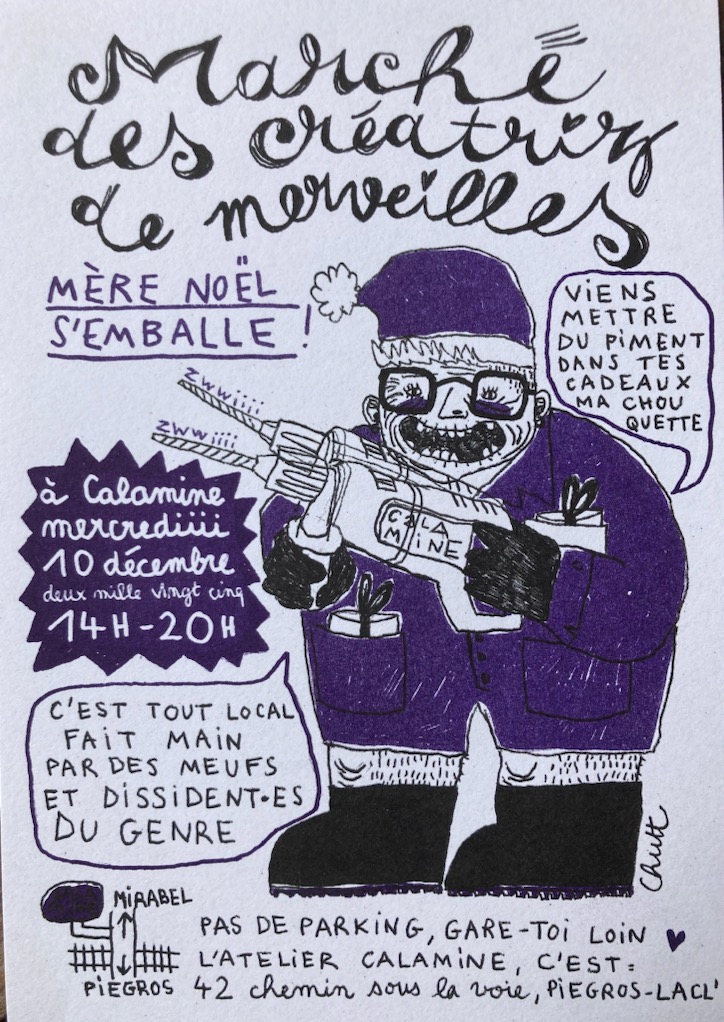 Marché
des créatriz
de merveilles
MÈRE NOËL
S'EMBALLE !
VIENS
METTRE
DU PiMENT
DANS TES
CADEAUX
MA CHOU
QUETTE
ZWWiiii
ZWWiiii
CALA
MiNE
à Calamine
mercrediiii
10 décembre
deux mille vingt cinq
14H-20H
C'EST TOUT LOCAL
FAIT MAIN
PAR DES MEUFS
ET DISSIDENT·ES
DU GENRE
Chutt
MiRABEL
PiEGROS
PAS DE PARKING, GARE-TOI LOIN
L'ATELIER CALAMINE, C'EST:
42 chemin sous la voie, PiEGROS-LACL'